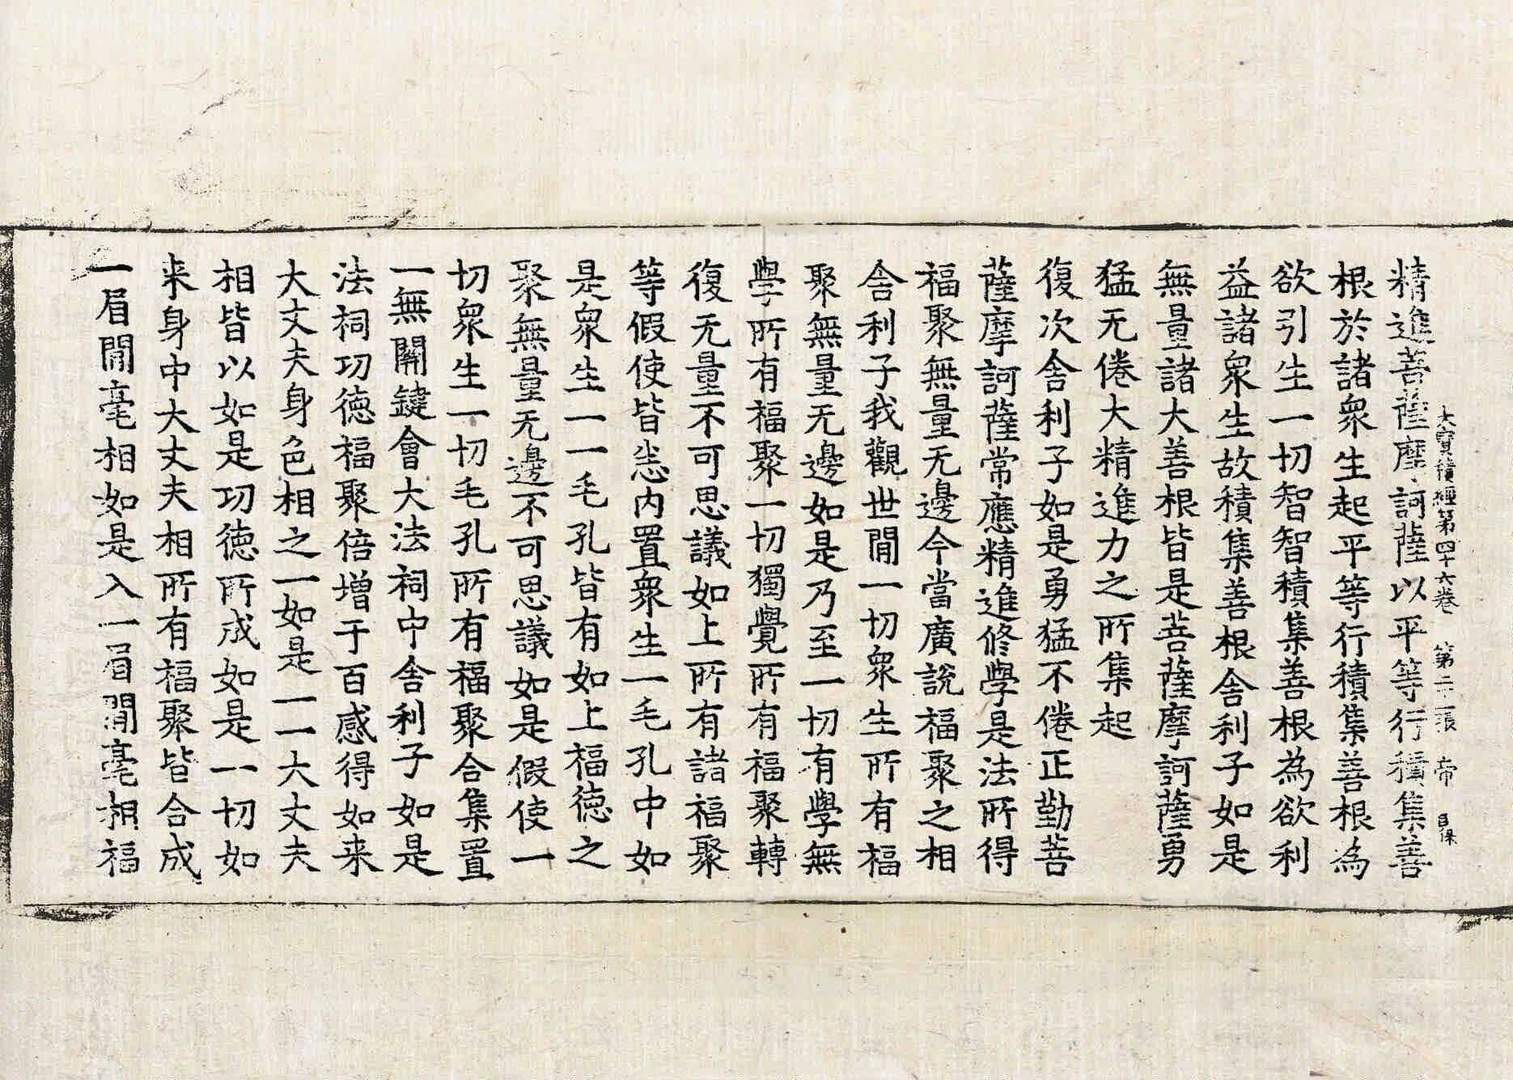 大寶積經第四十六卷　第二十二張　帝
精進菩薩摩訶薩以平等行積集善
根於諸衆生起平等行積集善根為
欲引生一切智智積集善根為欲利
益諸衆生故積集善根舎利子如是
無量諸大善根皆是菩薩摩訶薩勇
猛无倦大精進力之所集起
復次舎利子如是勇猛不倦正勤菩
薩摩訶薩常應精進修學是法所得
福聚無量无邊今當廣說福聚之相
舎利子我觀世間一切衆生所有福
聚無量无邊如是乃至一切有學無
學所有福聚一切獨覺所有福聚轉
復无量不可思議如上所有諸福聚
等假使皆悉内置衆生一毛孔中如
是衆生一一毛孔皆有如上福德之
聚無量无邊不可思議如是假使一
切衆生一切毛孔所有福聚合集置
一無關鍵會大法祠中舎利子如是
法祠功德福聚倍增于百感得如来
大丈夫身色相之一如是一一大丈夫
相皆以如是功德所成如是一切如
来身中大丈夫相所有福聚皆合成
一眉間毫相如是入一眉間毫相福